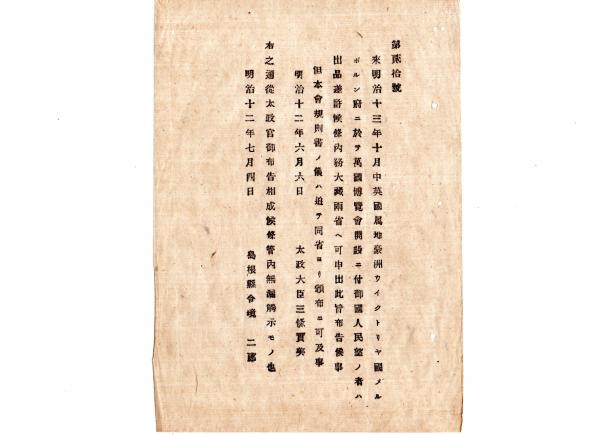 第貳拾號
來明治十三年十月中英國属地豪洲ウイクトリヤ國メル
ボルン府ニ於テ萬國博覽會開設ニ付御國人民望ノ者ハ
出品差許候條内務大藏兩省ヘ可申出此旨布告候事
但本會規則書ノ儀ハ追テ同省ヨリ頒布ニ可及事
明治十二年六月六日
太政大臣三條實美
右之通從太政官御布告相成候條管内無漏觸示モノ也
明治十二年七月四日
島根縣令境二郎